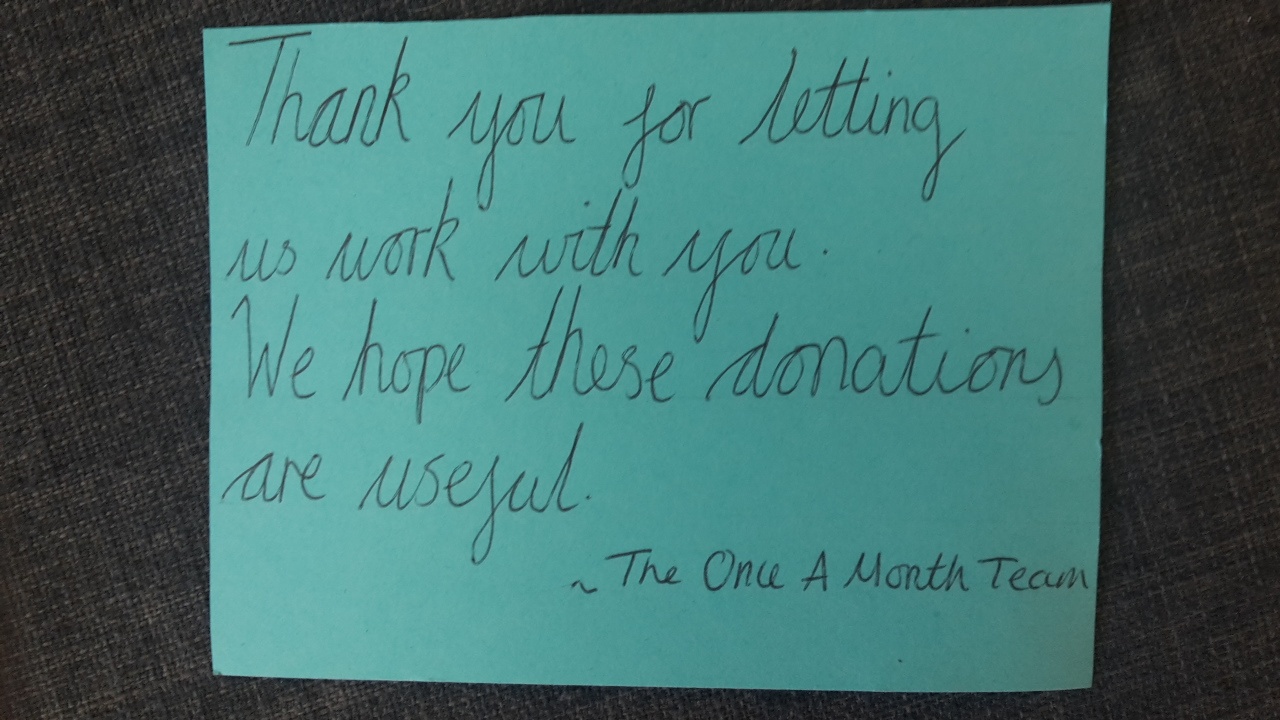 Thank you for letting
us work with you.
We hope these donations
are useful.
~ The Once A Month Team